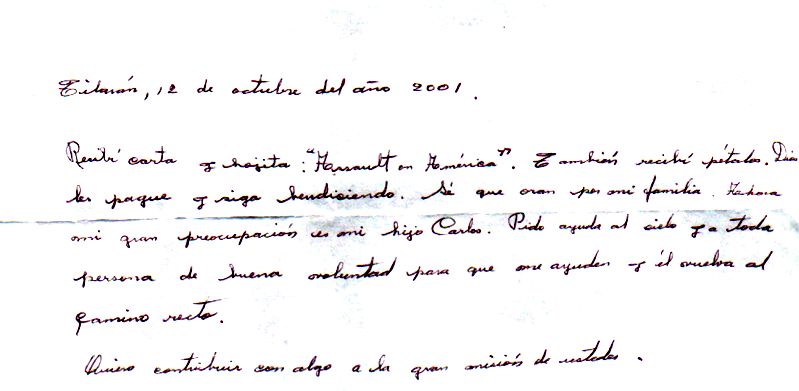 Tilarán, 12 de octubre del año 2001.
Recibí carta y hojita: "Assault on América". También recibí pétalos. Dios
les pague y siga bendiciendo. Sé que oran por mi familia. Ahora
mi gran preocupación es mi hijo Carlos. Pido ayuda al cielo y a toda
persona de buena voluntad para que me ayuden y él vuelva al
camino recto.
Quiero contribuir con algo a la gran misión de ustedes.